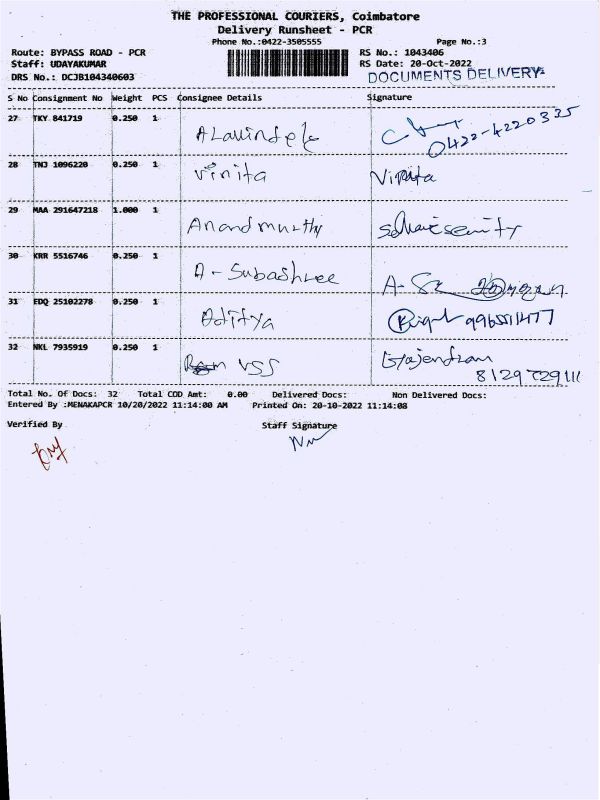 THE PROFESSIONAL COURIERS, Coimbatore
Delivery Runsheet - PCR
Phone No.:0422-3505555 Page No.:3
Route: BYPASS ROAD - PCR RS No.: 1043406
Staff: UDAYAKUMAR RS Date: 20-Oct-2022
DRS No.: DCJB104340603 DOCUMENTS DELIVERY
S No Consignment No Weight PCS Consignee Details Signature
27 TKY 841719 0.250 1 0422-4220335
28 TNJ 1096220 0.250 1 Vinita
29 MAA 291647218 1.000 1 Anand murthy
30 KRR 5516746 0.250 1 A - Subashree
31 EDQ 25102278 0.250 1 Aditya
32 NKL 7935919 0.250 1 VSS Gajendran
Total No. Of Docs: 32 Total COD Amt: 0.00 Delivered Docs: Non Delivered Docs:
Entered By :MENAKAPCR 10/20/2022 11:14:00 AM Printed On: 20-10-2022 11:14:08
Verified By Staff Signature